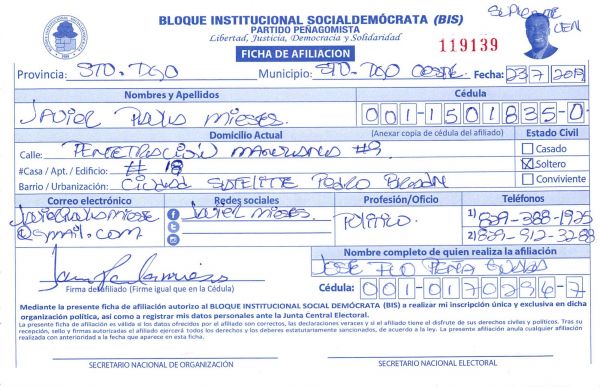 BLOQUE INSTITUCIONAL SOCIALDEMÓCRATA (BIS)
PARTIDO PEÑAGOMISTA
Libertad, Justicia, Democracia y Solidaridad
FICHA DE AFILIACION
119139
SUPLENTE
CEN
Provincia: STO. DGO Municipio: STO. DGO OESTE. Fecha: 23 7 2019
Nombres y Apellidos Cédula
JAVIEL Mieses. 001-1501835-0
Domicilio Actual (Anexar copia de cédula del afiliado) Estado Civil
Calle: PENETRACIÓN #9 Casado
#Casa / Apt. / Edificio: # 18 Soltero
Barrio / Urbanización: Ciudad SATELITE Pedro Brand Conviviente
Correo electrónico Redes sociales Profesión/Oficio Teléfonos
@gmail.com Javiel mieses. POLITICO. 1) 829-388-1925
2) 829-912-3288
Nombre completo de quien realiza la afiliación
JOSE FCO PEÑA
Firma del afiliado (Firme igual que en la Cédula) Cédula: 001-0170296-7
Mediante la presente ficha de afiliación autorizo al BLOQUE INSTITUCIONAL SOCIAL DEMÓCRATA (BIS) a realizar mi inscripción única y exclusiva en dicha
organización política, así como a registrar mis datos personales ante la Junta Central Electoral.
La presente ficha de afiliación es válida si los datos ofrecidos por el afiliado son correctos, las declaraciones veraces y si el afiliado tiene el disfrute de sus derechos civiles y políticos. Tras su
recepción, sello y firmas autorizadas el afiliado ejercerá todos los derechos y los deberes estatutariamente sancionados, de acuerdo a la ley. La presente afiliación anula cualquier afiliación
realizada con anterioridad a la fecha que aparece en esta ficha.
SECRETARIO NACIONAL DE ORGANIZACIÓN SECRETARIO NACIONAL ELECTORAL